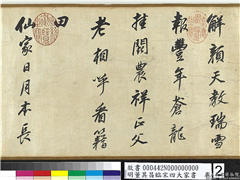 解顏天教瑞雪
報豐年蒼龍
挂闕農祥正父
老相呼看籍
田
仙家日月本長
故書000442N000000000
明董其昌臨宋四大家書
2